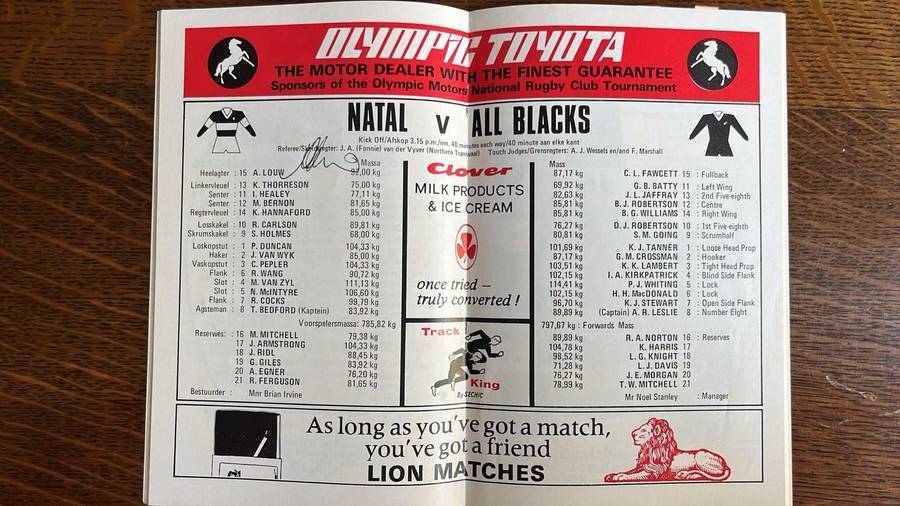 OLYMPIC TOYOTA
THE MOTOR DEALER WITH THE FINEST GUARANTEE
Sponsors of the Olympic Motors National Rugby Club Tournament
NATAL v ALL BLACKS
Kick Off/Afskop 3.15 p.m./nm, 40 minutes each way/40 minute aan elke kant
Referee/Skeidsregter: J. A. (Fonnie) van der Vyver (Northern Transvaal) Touch Judges/Grensregters: A. J. Wessels en/and F. Marshall
Massa
Heelagter : 15 A. LOUW 92,00 kg
Linkervleuel : 13 K. THORRESON 75,00 kg
Senter : 11 I. HEALEY 77,11 kg
Senter : 12 M. BERNON 81,65 kg
Regtervleuel : 14 K. HANNAFORD 85,00 kg
Losskakel : 10 R. CARLSON 89,81 kg
Skrumskakel : 9 S. HOLMES 68,00 kg
Loskopstut : 1 P. DUNCAN 104,33 kg
Haker : 2 J. VAN WYK 85,00 kg
Vaskopstut : 3 C. PEPLER 104,33 kg
Flank : 6 R. WANG 90,72 kg
Slot : 4 M. VAN ZYL 111,13 kg
Slot : 5 N. McINTYRE 106,60 kg
Flank : 7 R. COCKS 99,79 kg
Agsteman : 8 T. BEDFORD (Kaptein) 83,92 kg
Voorspelersmassa: 785,82 kg
Reserwes: : 16 M. MITCHELL 79,38 kg
17 J. ARMSTRONG 104,33 kg
18 J. RIDL 88,45 kg
19 G. GILES 83,92 kg
20 A. EGNER 76,20 kg
21 R. FERGUSON 81,65 kg
Bestuurder : Mnr Brian Irvine
Clover
MILK PRODUCTS
& ICE CREAM
once tried –
truly converted !
Track
King
By SECHIC
Mass
87,17 kg C. L. FAWCETT 15 : Fullback
69,92 kg G. B. BATTY 11 : Left Wing
87,17 kg J. L. JAFFRAY 13 : 2nd Five-eighth
85,81 kg B. J. ROBERTSON 12 : Centre
85,81 kg B. G. WILLIAMS 14 : Right Wing
76,27 kg D. J. ROBERTSON 10 : 1st Five-eighth
80,81 kg S. M. GOING 9 : Scrumhalf
101,69 kg K. J. TANNER 1 : Loose Head Prop
87,17 kg G. M. CROSSMAN 2 : Hooker
103,51 kg K. K. LAMBERT 3 : Tight Head Prop
102,15 kg I. A. KIRKPATRICK 4 : Blind Side Flank
114,41 kg P. J. WHITING 5 : Lock
102,15 kg H. H. MacDONALD 6 : Lock
96,70 kg K. J. STEWART 7 : Open Side Flank
89,89 kg (Captain) A. R. LESLIE 8 : Number Eight
797,67 kg : Forwards Mass
89,89 kg R. A. NORTON 16 : Reserves
104,78 kg K. HARRIS 17
98,52 kg L. G. KNIGHT 18
71,28 kg L. J. DAVIS 19
76,27 kg J. E. MORGAN 20
78,99 kg T. W. MITCHELL 21
Mr Noel Stanley : Manager
As long as you've got a match,
you've got a friend
LION MATCHES